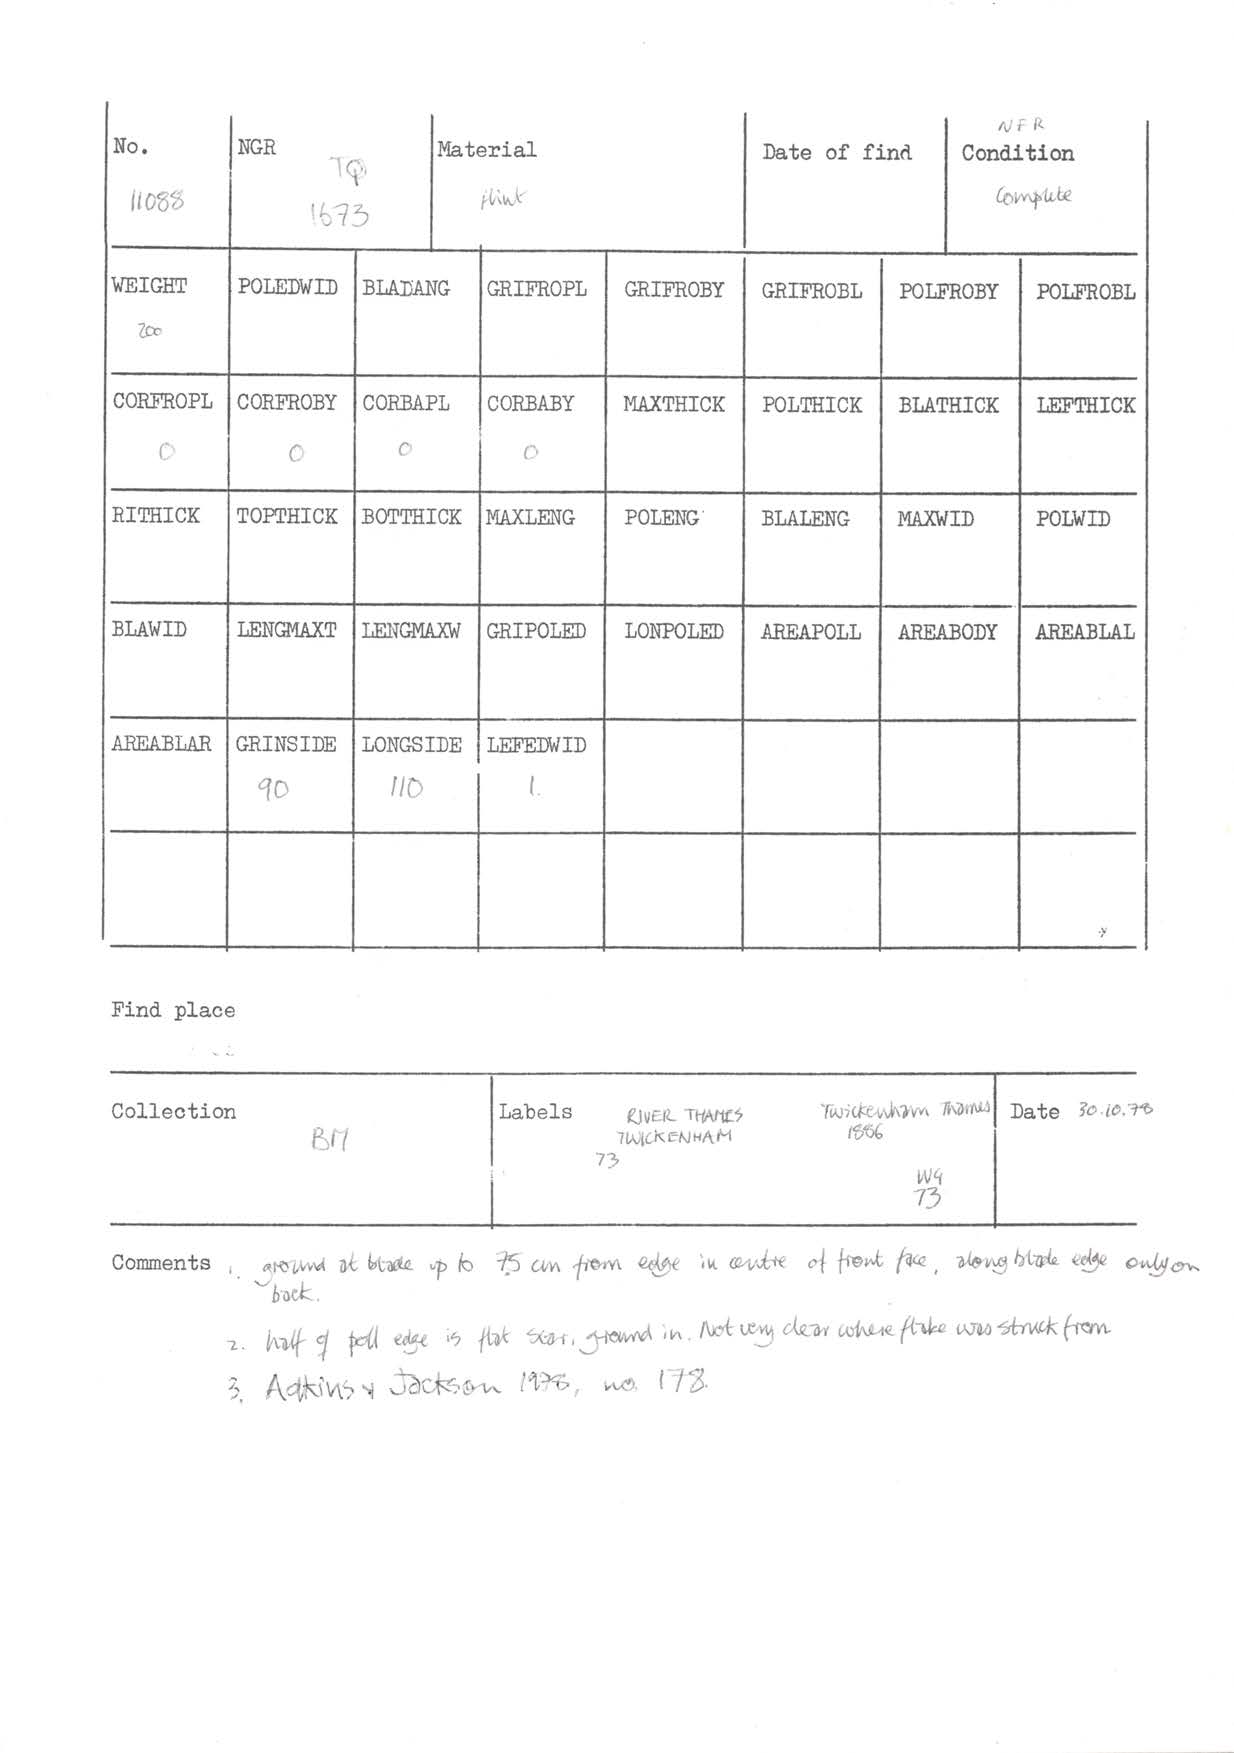 No. NGR Material Date of find NFR Condition
11088 TQ 1673 flint Complete
WEIGHT POLEDWID BLADANG GRIFROPL GRIFROBY GRIFROBL POLFROBY POLFROBL
200
CORFROPL CORFROBY CORBAPL CORBABY MAXTHICK POLTHICK BLATHICK LEFTHICK
0 0 0 0
RITHICK TOPTHICK BOTTHICK MAXLENG POLENG BLALENG MAXWID POLWID
BLAWID LENGMAXT LENGMAXW GRIPOLED LONPOLED AREAPOLL AREABODY AREABLAL
AREABLAR GRINSIDE LONGSIDE LEFEDWID
90 110 1.
Find place
Collection
BM
Labels
RIVER THAMES
TWICKENHAM
73
Twickenham Thames
1886
WG
73
Date 30.10.78
Comments 1. ground at blade up to 7.5 cm from edge in centre of front face, along blade edge only on
back.
2. half of poll edge is flat scar, ground in. Not very clear where flake was struck from
3. Adkins & Jackson 1978, no. 178.